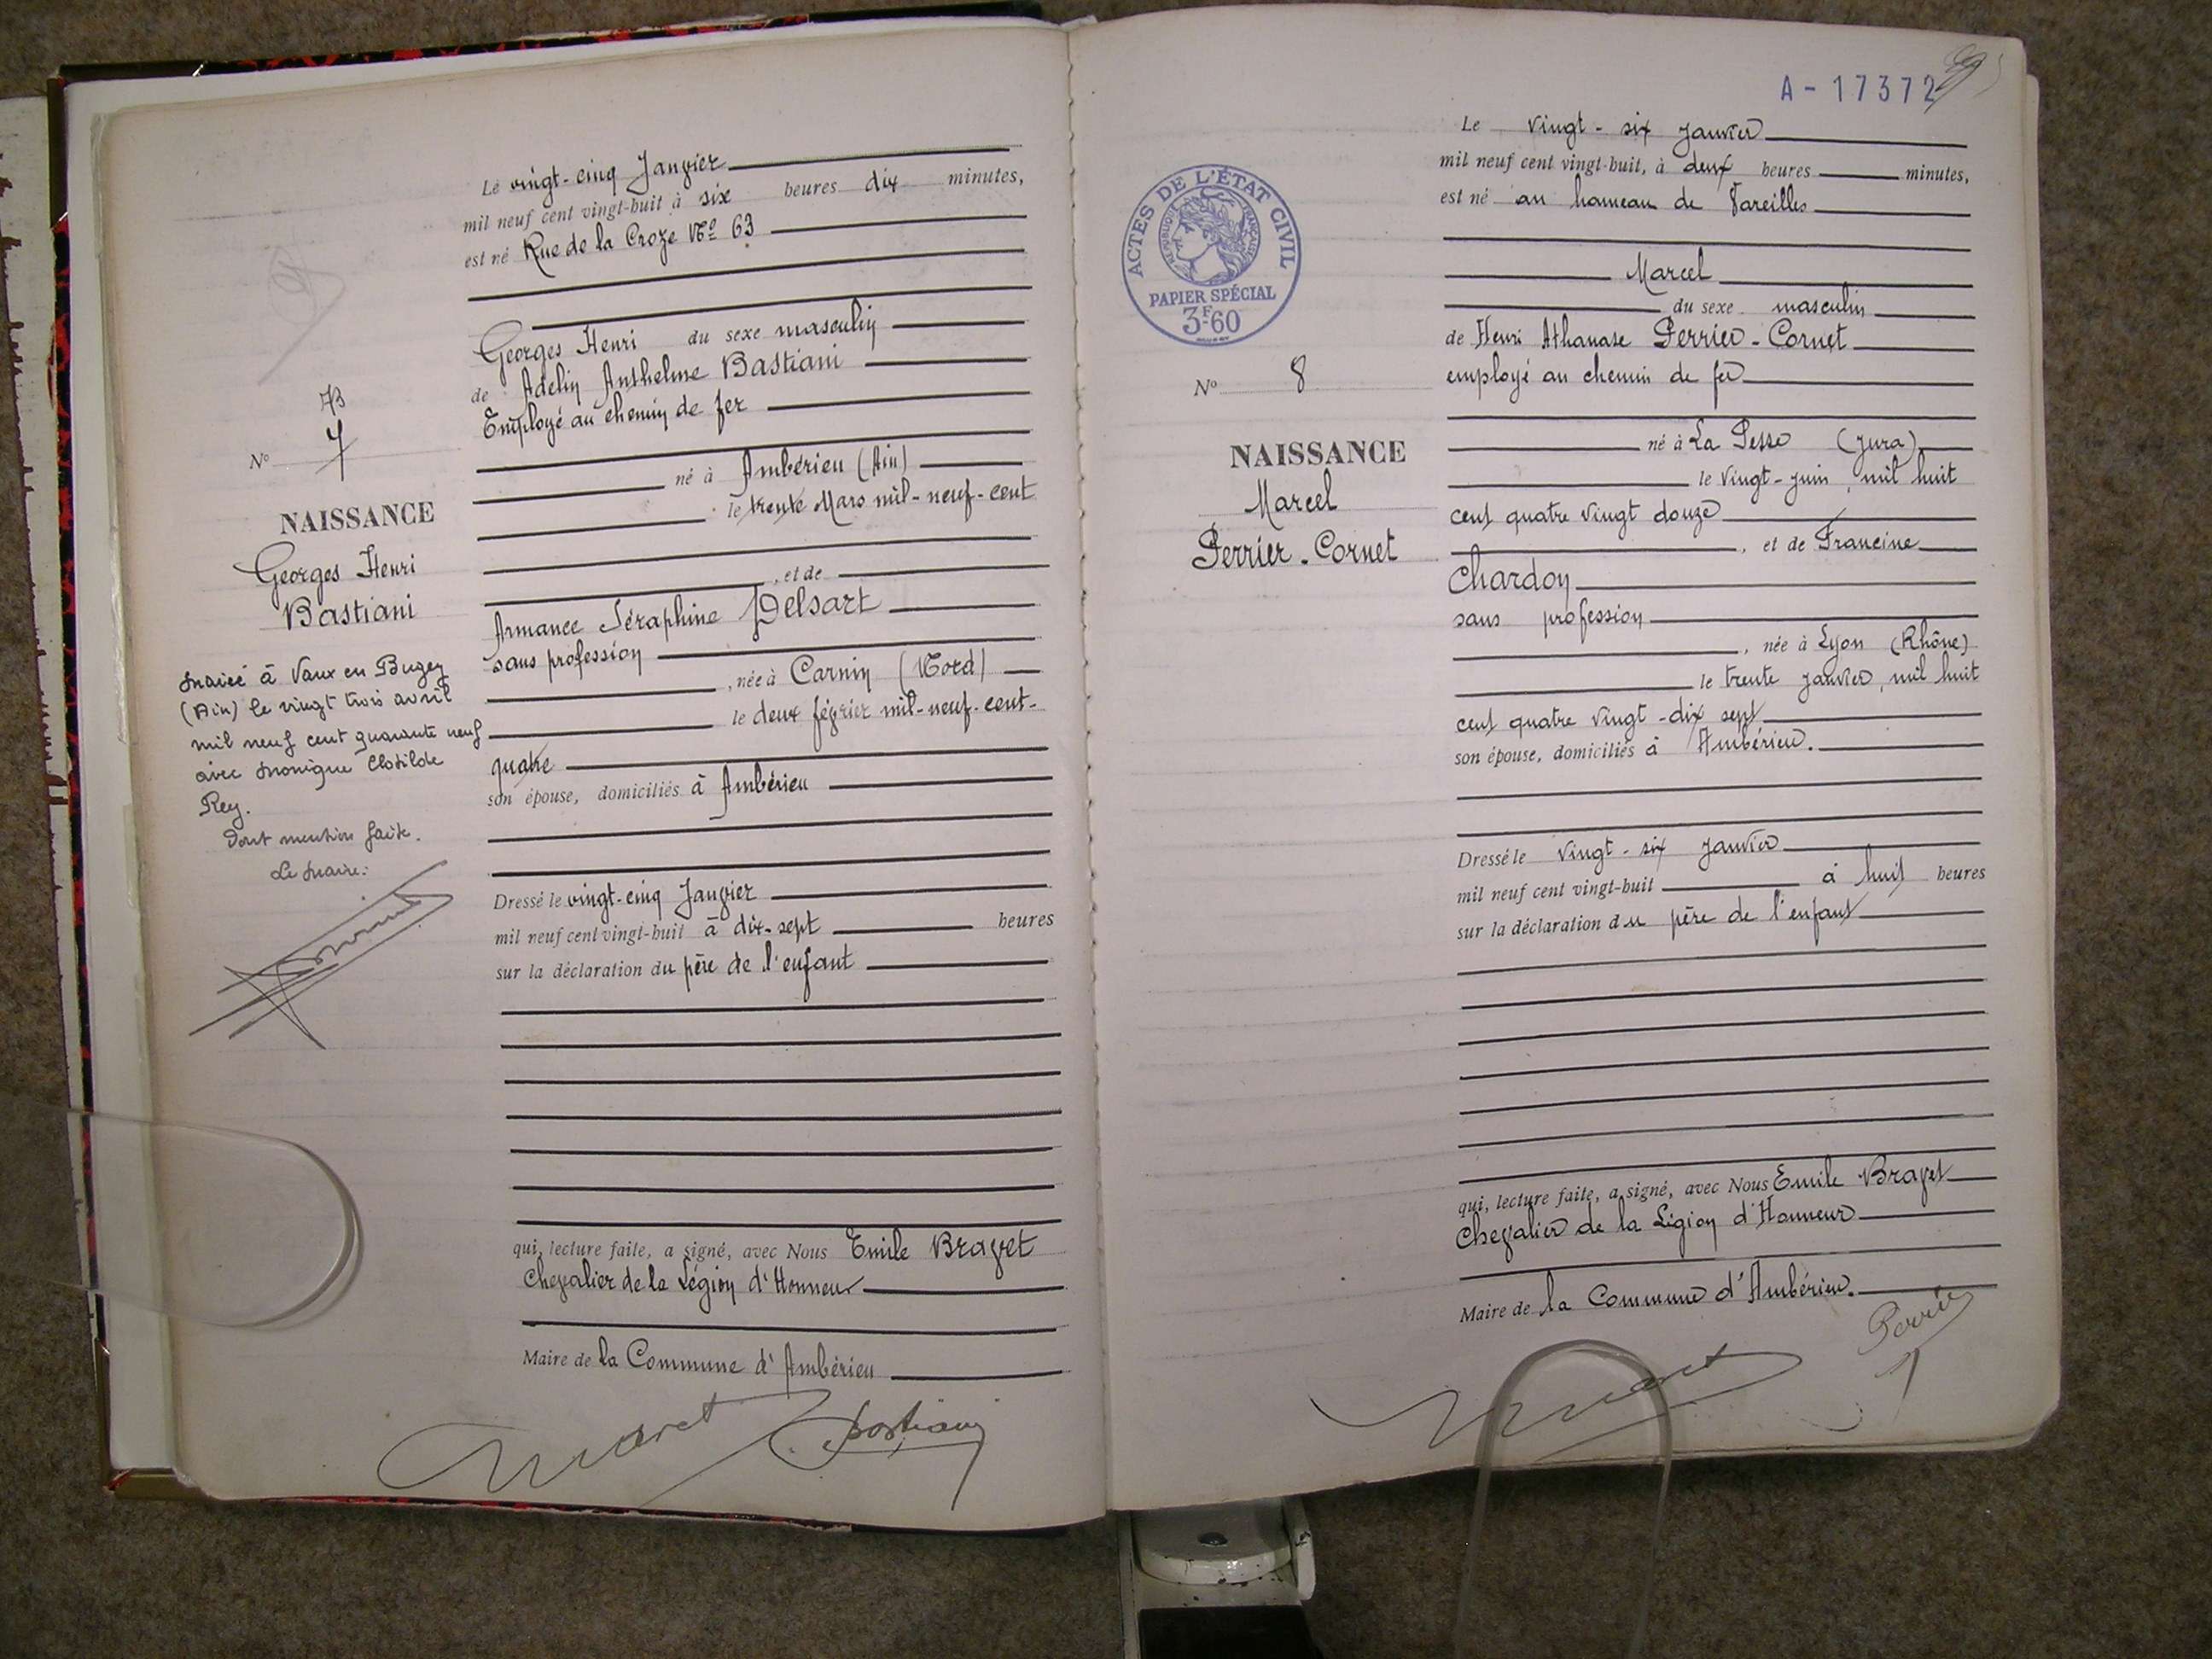 Le vingt-cinq Janvier
mil neuf cent vingt-huit à six heures dix minutes,
est né Rue de la Croze Nº 63
Georges Henri du sexe masculin
de Adelin Anthelme Bastiani
Employé au chemin de fer
né à Ambérieu (Ain)
le trente Mars mil-neuf-cent
, et de
Armance Séraphine Delsart
sans profession
, née à Carnin (Nord)
le deux février mil-neuf-cent-
quatre
son épouse, domiciliés à Ambérieu
Dressé le vingt-cinq Janvier
mil neuf cent vingt-huit à dix-sept heures
sur la déclaration du père de l'enfant
qui, lecture faite, a signé, avec Nous Emile Bravet
Chevalier de la Légion d'Honneur
Maire de la Commune d'Ambérieu
Bravet Bastiani
Nº 7
NAISSANCE
Georges Henri
Bastiani
Marié à Vaux en Bugey
(Ain) le vingt trois avril
mil neuf cent quarante neuf
avec Monique Clotilde
Rey.
Dont mention faite.
Le Maire:
A-17372
Le vingt-six janvier
mil neuf cent vingt-huit, à deux heures minutes,
est né au hameau de Vareilles
Marcel
du sexe masculin
de Henri Athanase Perrier-Cornet
employé au chemin de fer
né à La Pesse (Jura)
le vingt-juin, mil huit
cent quatre vingt douze
, et de Francine
Chardon
sans profession
, née à Lyon (Rhône)
le trente janvier, mil huit
cent quatre vingt-dix sept
son épouse, domiciliés à Ambérieu.
Dressé le vingt-six janvier
mil neuf cent vingt-huit à huit heures
sur la déclaration du père de l'enfant
qui, lecture faite, a signé, avec Nous Emile Bravet
Chevalier de la Légion d'Honneur
Maire de la Commune d'Ambérieu.
Bravet Perrier
ACTES DE L'ÉTAT CIVIL
RÉPUBLIQUE FRANÇAISE
PAPIER SPÉCIAL
3F60
Nº 8
NAISSANCE
Marcel
Perrier-Cornet